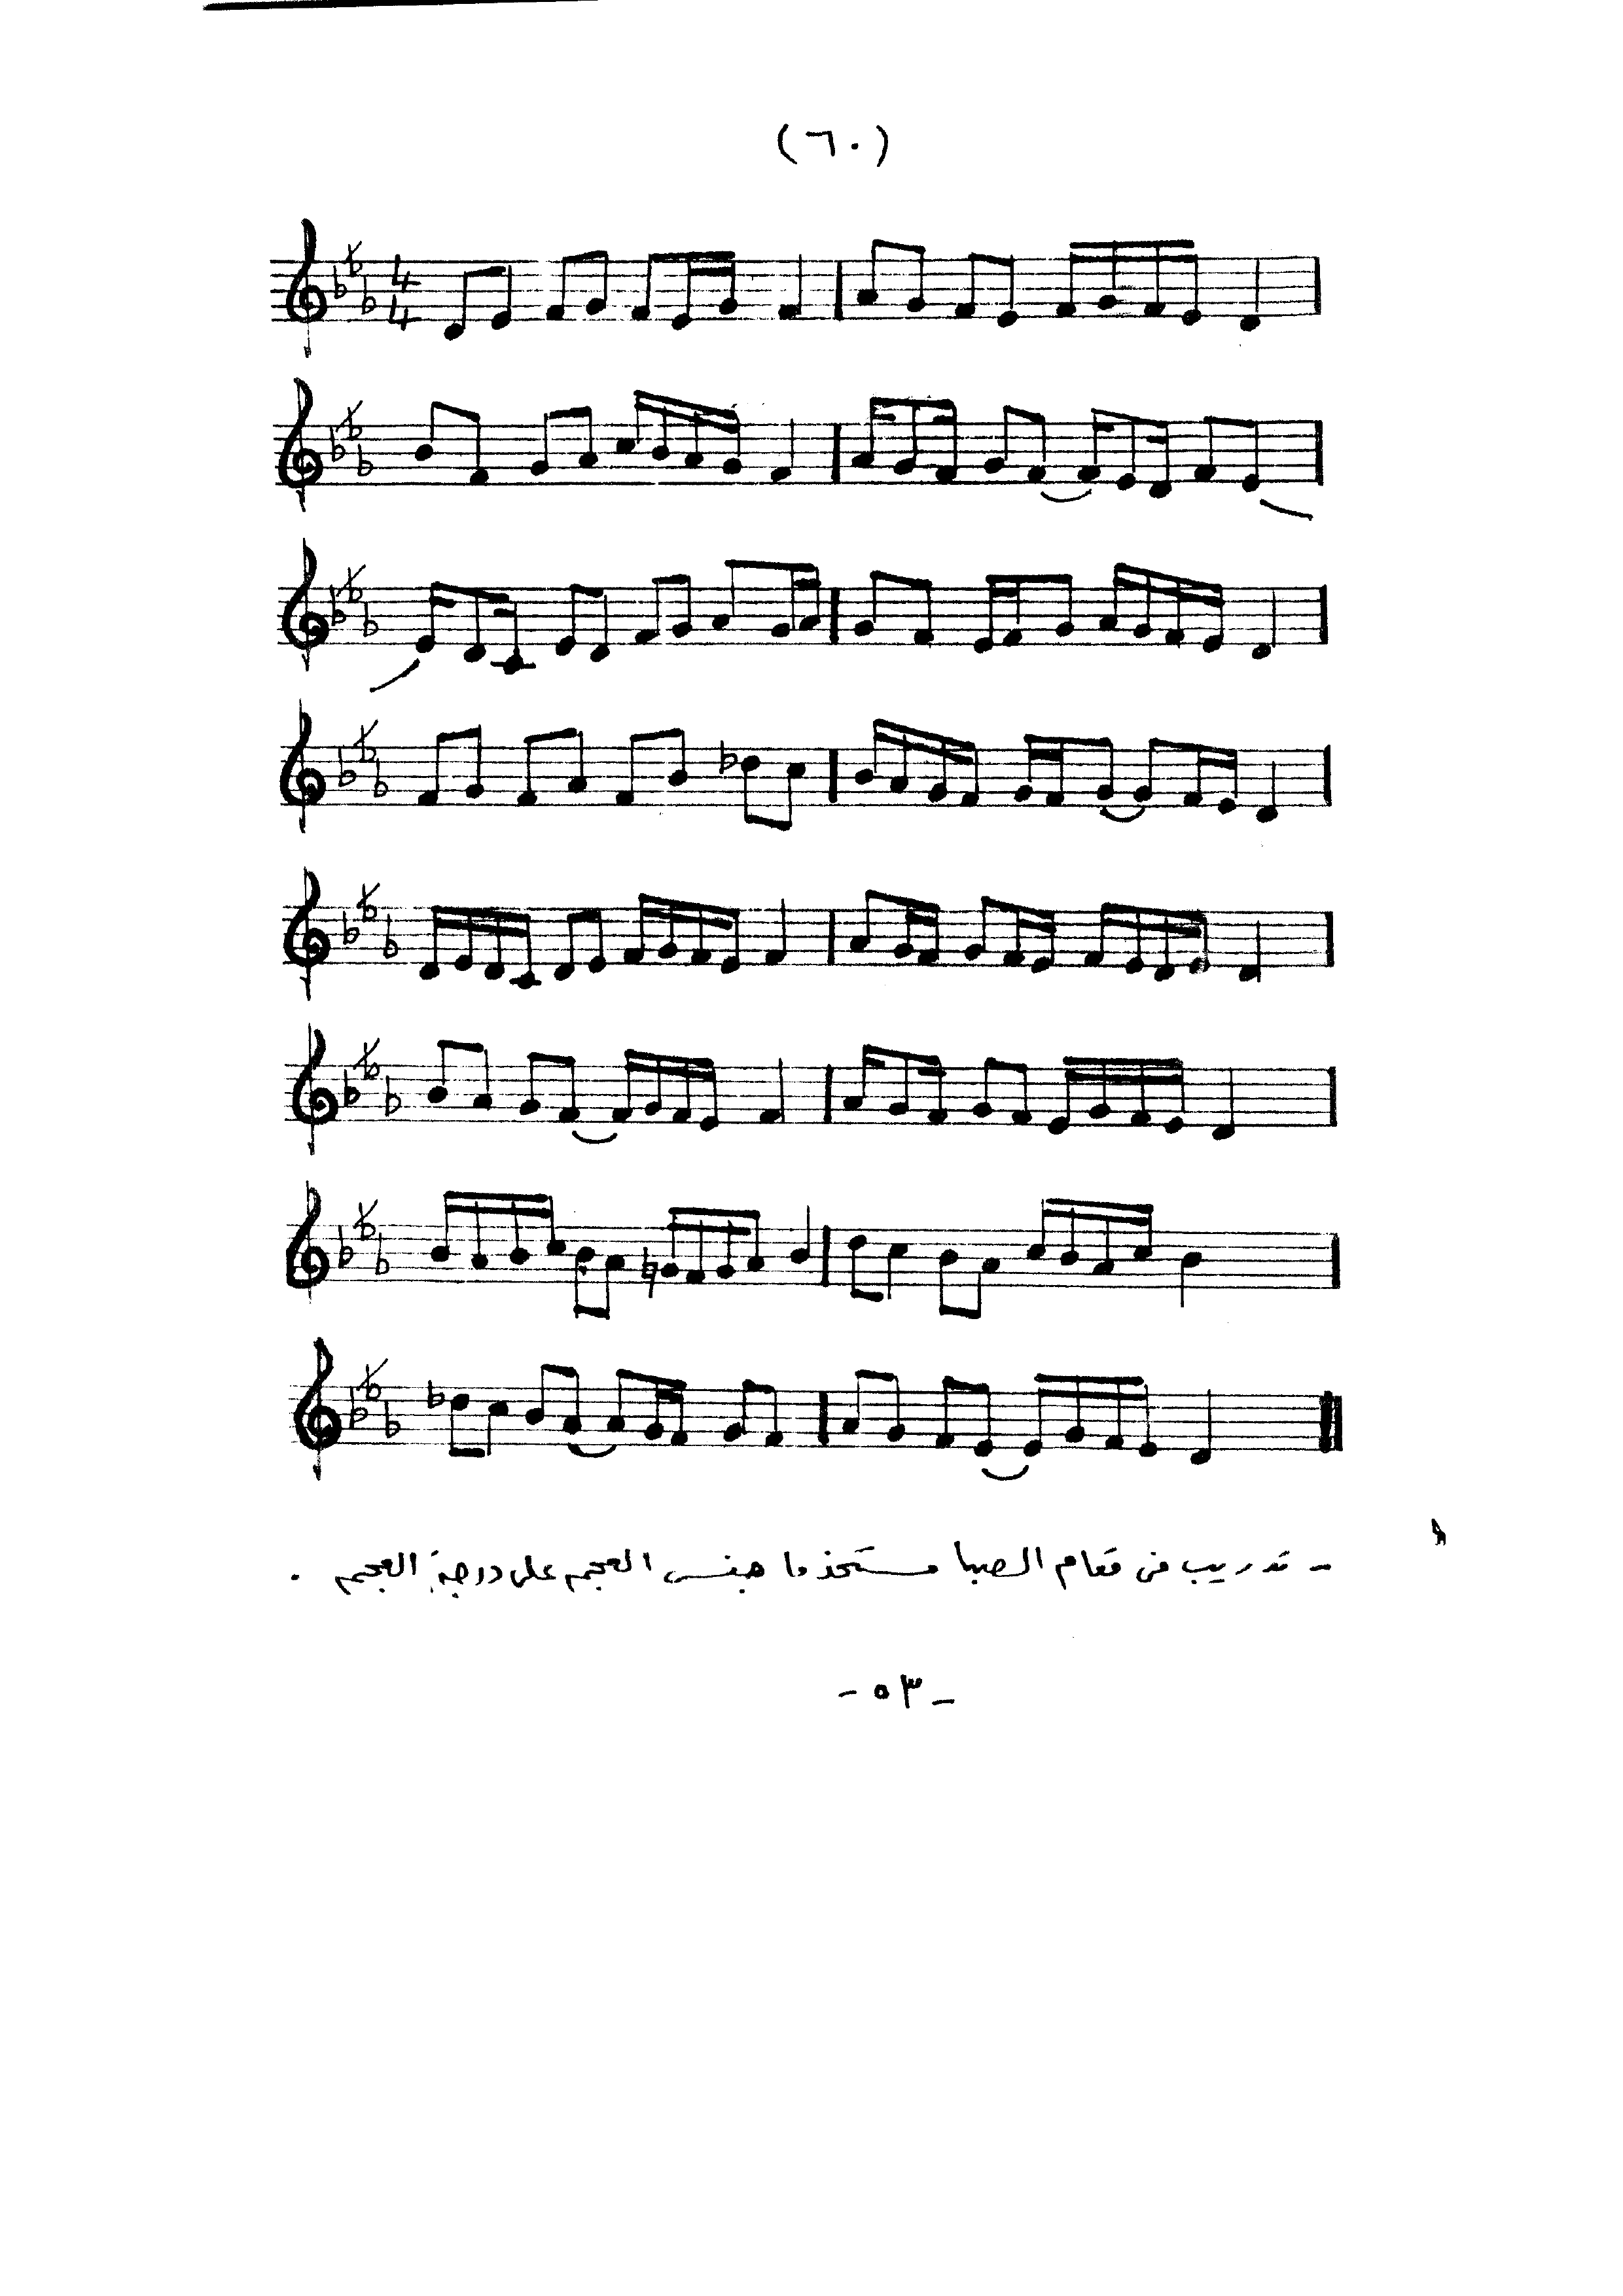 (٦٠)
4
4
- تدريب في مقام الصبا مستخدما جنس العجم على درجة العجم .
- ٥٣ -